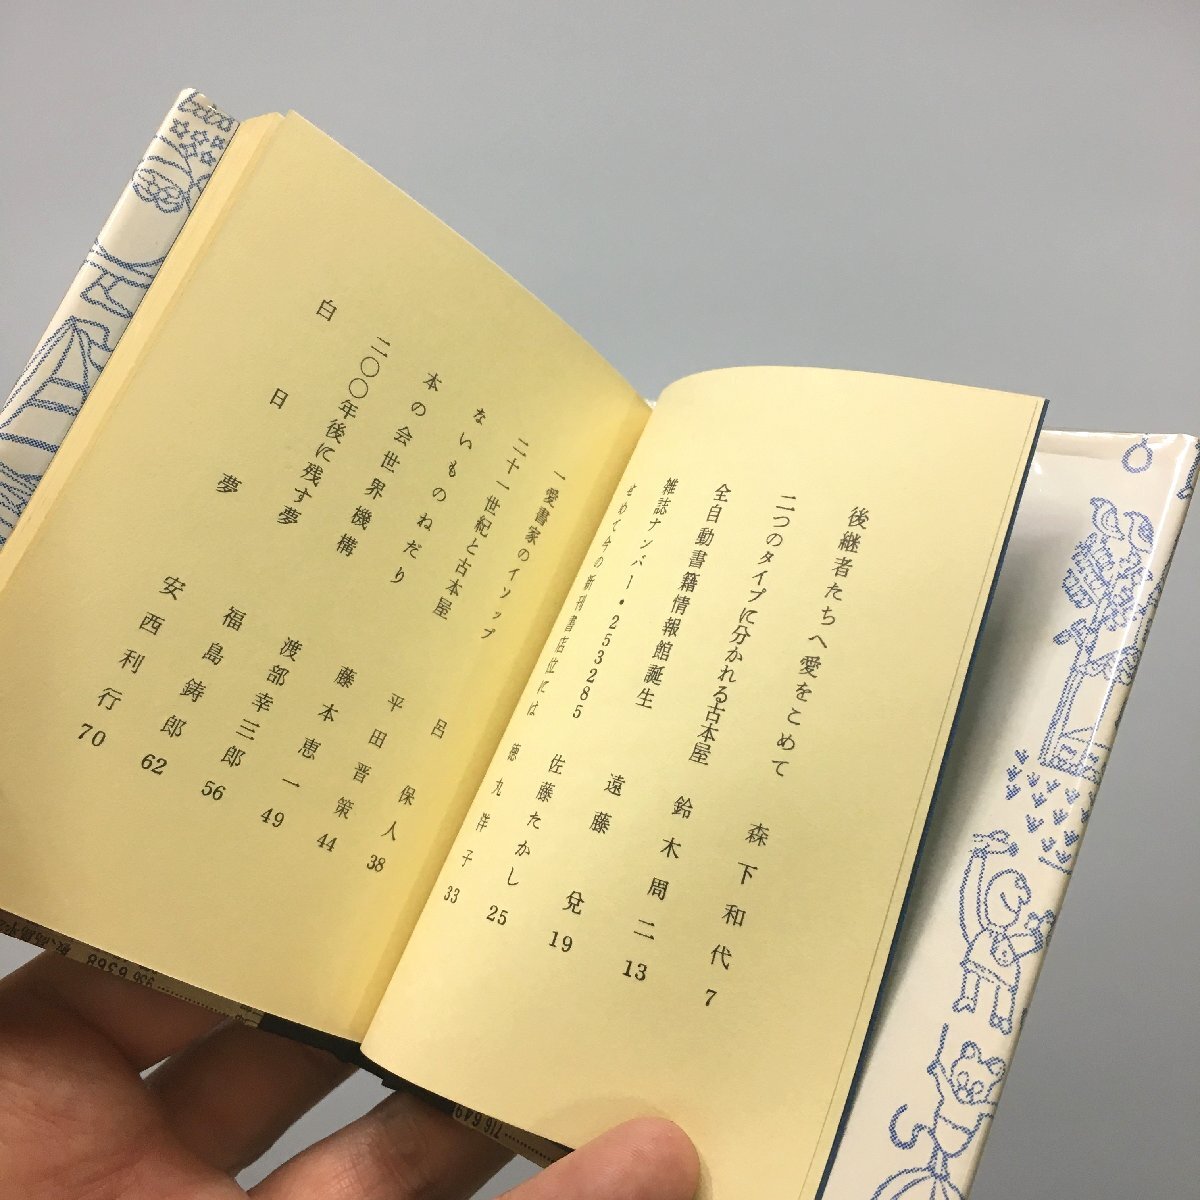 後継者たちへ愛をこめて 森下和代 7
二つのタイプに分かれる古本屋 鈴木周二 13
全自動書籍情報館誕生 遠藤 兌 19
雑誌ナンバー・253285 佐藤たかし 25
せめて今の新刊書店位には 徳丸洋子 33
一愛書家のイソップ 呂保人 38
二十一世紀と古本屋 平田晋策 44
ないものねだり 藤本恵一 49
本の会世界機構 渡部幸三郎 56
二〇〇年後に残す夢 福島鋳郎 62
白日夢 安西利行 70